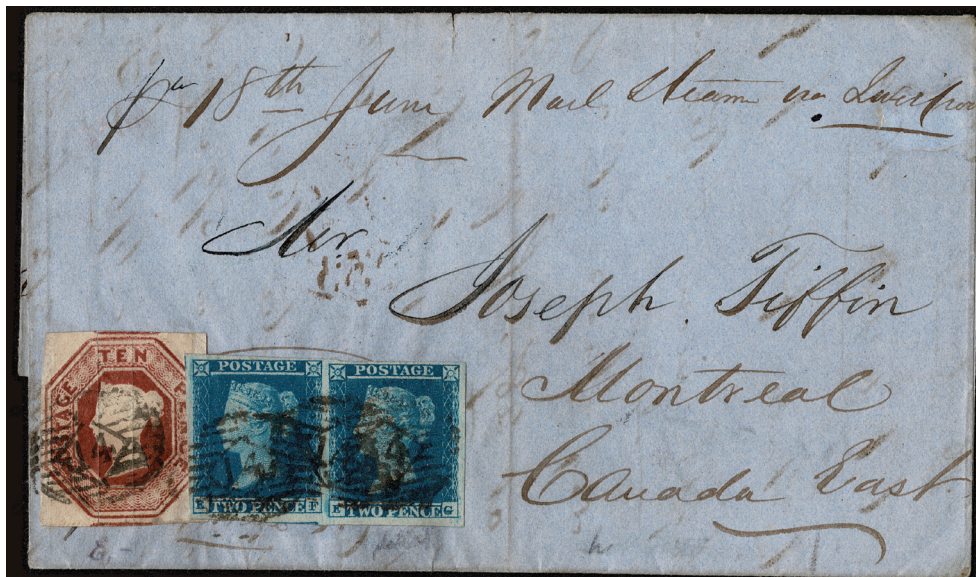 per 18th June Mail Steam via Liverpoo
Mr
Joseph Tiffin
Montreal
Canada East
POSTAGE TEN
POSTAGE
E TWO PENCE F
POSTAGE
E TWO PENCE G